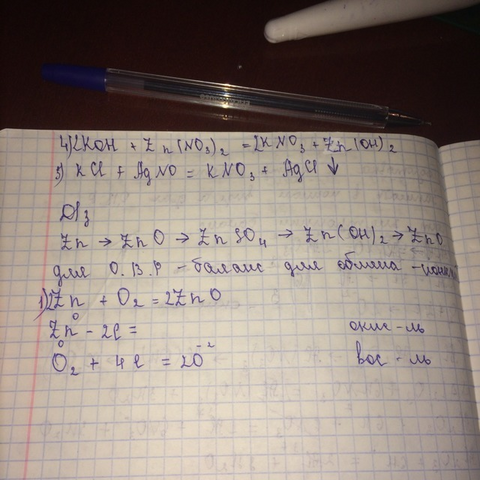 4) 2KOH + Zn(NO₃)₂ = 2KNO₃ + Zn(OH)₂
5) KCl + AgNO = KNO₃ + AgCl ↓
Д/з
Zn → ZnO → ZnSO₄ → Zn(OH)₂ → ZnO
для О.В.Р - баланс для обмена -
1) 2Zn + O₂ = 2ZnO
Zn⁰ - 2e = окис - ль
O₂⁰ + 4e = 2O⁻² вос - ль